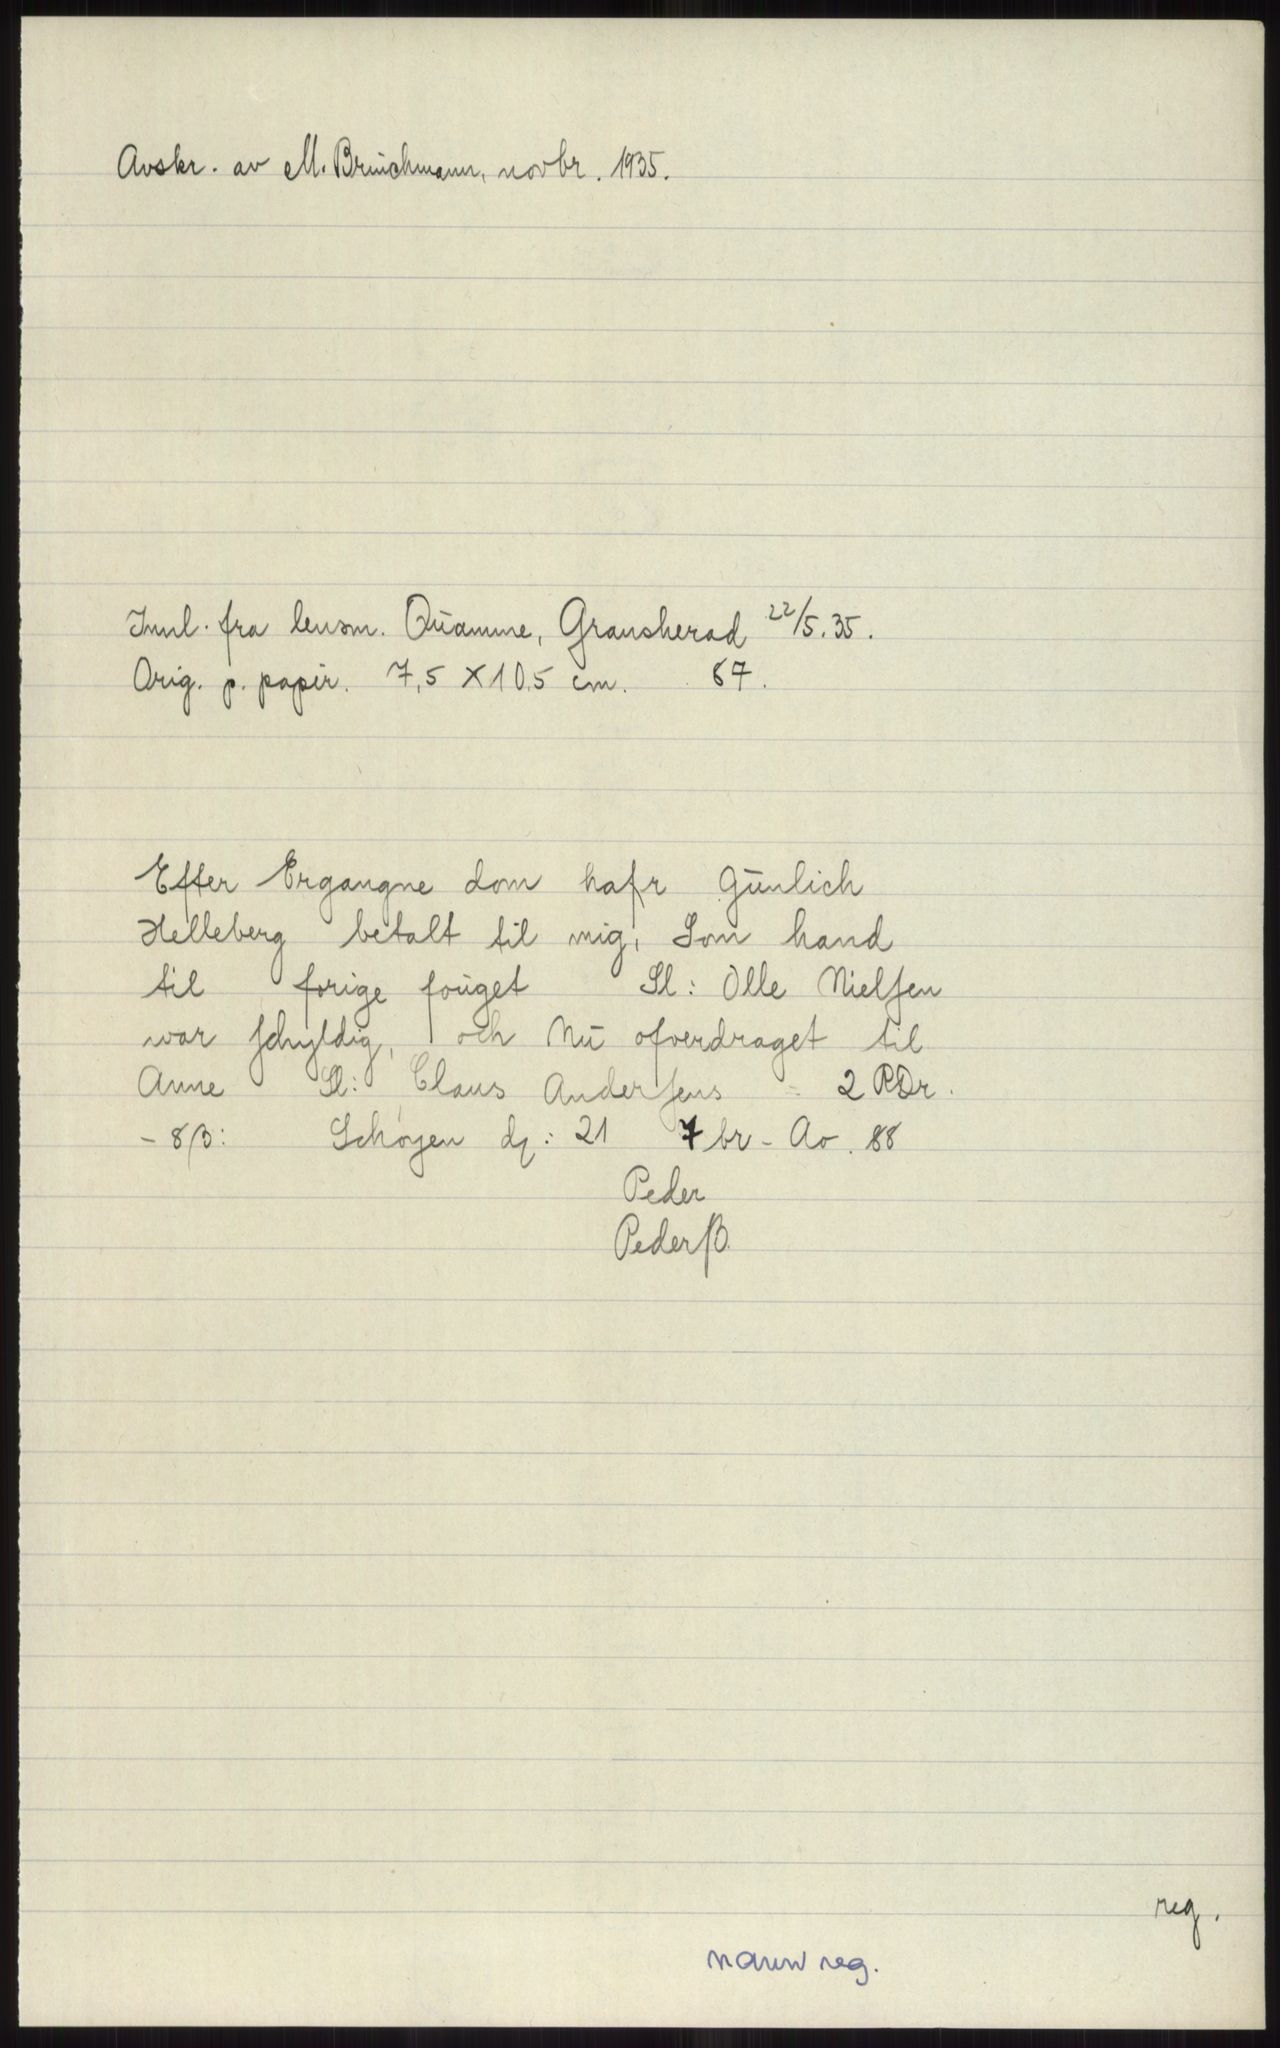 Avskr. av M. Brüichmann, novbr. 1935.
Innl. fra lensm. Qŭamme, Gransherad 22/5.35.
Orig. p. papir. 7,5 X 10,5 cm. 67.
Efter Ergangne dom hafr Gŭnlich
Helleberg betalt til mig, Som hand
til forige foŭget Sl: Olle Nielsen
war schyldig, och Nŭ ofverdraget til
Anne Sl: Claus Andersens - 2 RDr.
- 8 β: Schøyen dȝ: 21 7br - Ao. 88
Peder
Pederß.
reg.
navn reg.